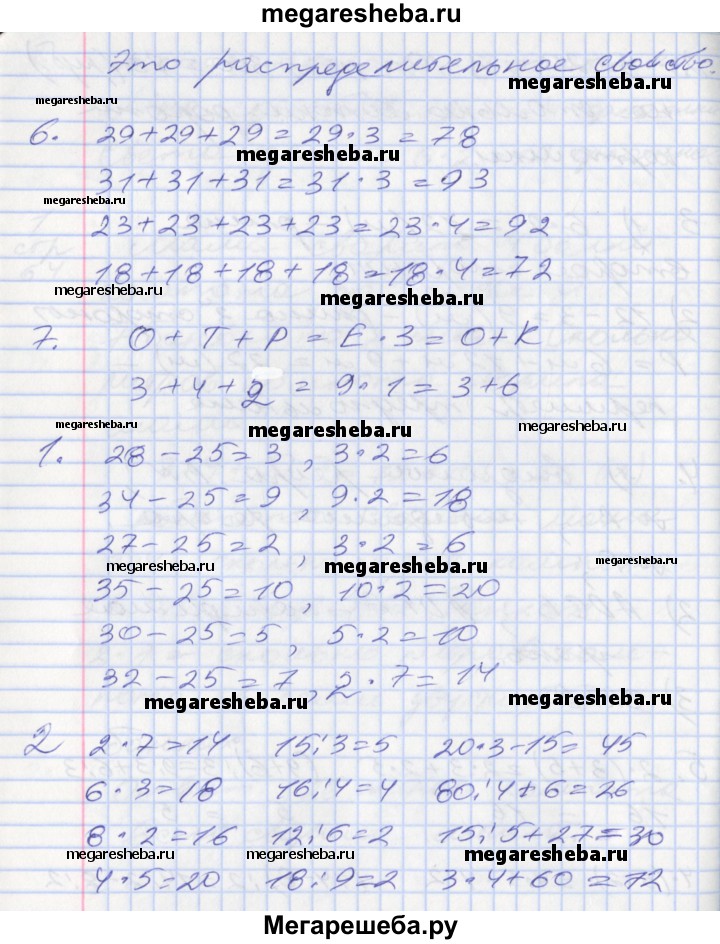 megaresheba.ru
Это распределительное свойство.
megaresheba.ru
megaresheba.ru
6. 29+29+29=29·3=78
megaresheba.ru
31+31+31=31·3=93
megaresheba.ru
23+23+23+23=23·4=92
18+18+18+18=18·4=72
megaresheba.ru
megaresheba.ru
7. О+Т+Р=Е·3=О+К
3+4+2=9·1=3+6
megaresheba.ru
megaresheba.ru
megaresheba.ru
1. 28-25=3, 3·2=6
34-25=9, 9·2=18
27-25=2, 3·2=6
megaresheba.ru
megaresheba.ru
megaresheba.ru
35-25=10, 10·2=20
30-25=5, 5·2=10
32-25=7, 2·7=14
megaresheba.ru
megaresheba.ru
2 2·7=14 15:3=5 20·3-15=45
6·3=18 16:4=4 80:4+6=26
8·2=16 12:6=2 15:5+27=30
megaresheba.ru
megaresheba.ru
megaresheba.ru
4·5=20 18:9=2 3·4+60=72
Мегарешеба.ру